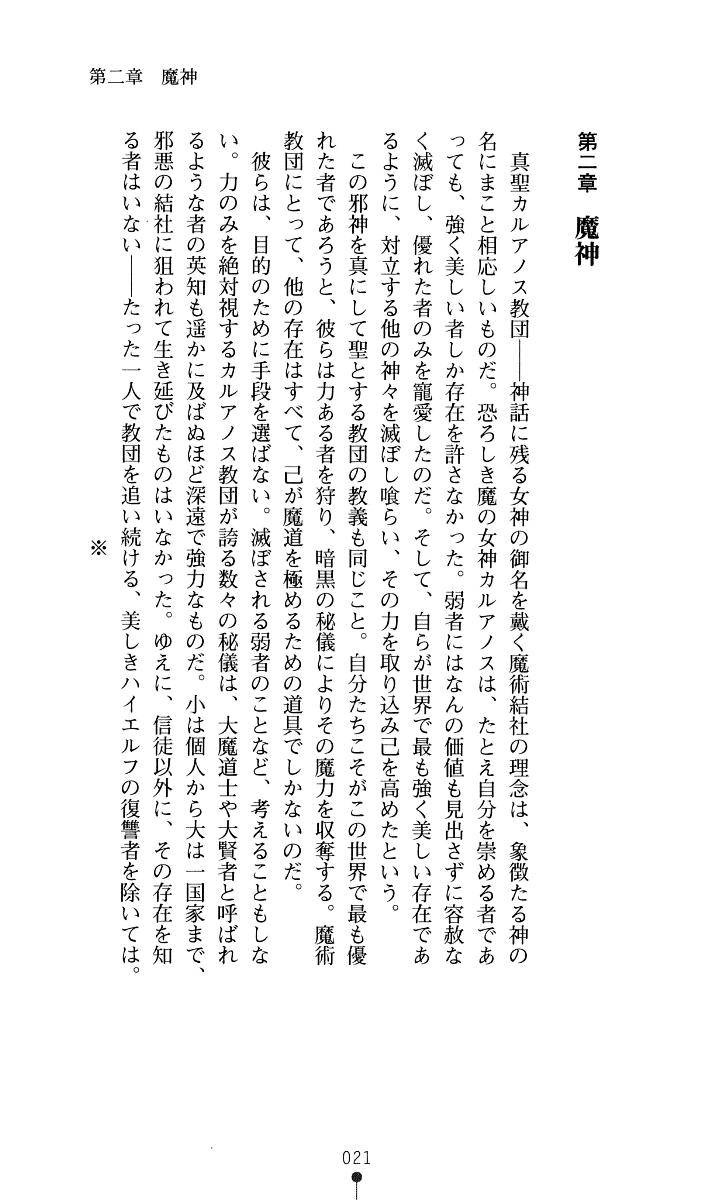 第二章　魔神
第二章　魔神
　真聖カルアノス教団――神話に残る女神の御名を戴く魔術結社の理念は、象徴たる神の
名にまこと相応しいものだ。恐ろしき魔の女神カルアノスは、たとえ自分を崇める者であ
っても、強く美しい者しか存在を許さなかった。弱者にはなんの価値も見出さずに容赦な
く滅ぼし、優れた者のみを寵愛したのだ。そして、自らが世界で最も強く美しい存在であ
るように、対立する他の神々を滅ぼし喰らい、その力を取り込み己を高めたという。
　この邪神を真にして聖とする教団の教義も同じこと。自分たちこそがこの世界で最も優
れた者であろうと、彼らは力ある者を狩り、暗黒の秘儀によりその魔力を収奪する。魔術
教団にとって、他の存在はすべて、己が魔道を極めるための道具でしかないのだ。
　彼らは、目的のために手段を選ばない。滅ぼされる弱者のことなど、考えることもしな
い。力のみを絶対視するカルアノス教団が誇る数々の秘儀は、大魔道士や大賢者と呼ばれ
るような者の英知も遥かに及ばぬほど深遠で強力なものだ。小は個人から大は一国家まで、
邪悪の結社に狙われて生き延びたものはいなかった。ゆえに、信徒以外に、その存在を知
る者はいない――たった一人で教団を追い続ける、美しきハイエルフの復讐者を除いては。
※
021